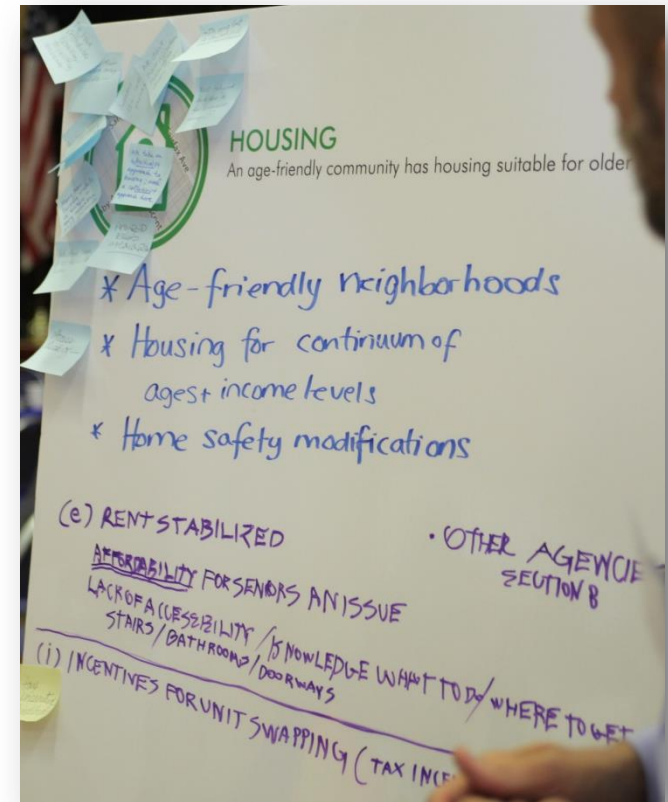 HOUSING
An age-friendly community has housing suitable for older
* Age-friendly neighborhoods
* Housing for continuum of
ages+ income levels
* Home safety modifications
(e) RENT STABILIZED
AFFORDABILITY FOR SENIORS AN ISSUE
LACK OF ACCESSIBILITY / KNOWLEDGE WHAT TO DO/WHERE TO GET
STAIRS/BATHROOMS/DOORWAYS
• OTHER AGENCIE
SECTION 8
(i) INCENTIVES FOR UNIT SWAPPING (TAX INCE